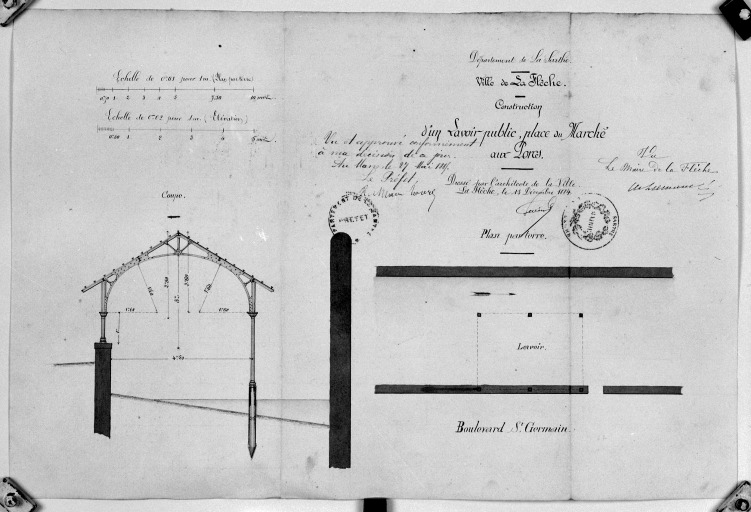 Echelle de 0.01 pour 1m. (Plan par terre)
Echelle de 0m02 pour 1m. (Elévation)
Département de La Sarthe.
Ville de La Flèche.
Construction
d'un Lavoir public, place du Marché
aux Porcs.
Vu et approuvé conformément
à ma décision de ce jour.
Au Mans, le 27 Mai
Le Préfet
Dressé par l'architecte de la Ville.
La Flèche, le 15 Décembre 1884
Vu
Le Maire de la Flèche
PREFET
Coupe.
Plan par terre.
4m80
Lavoir.
Boulevard St Germain.